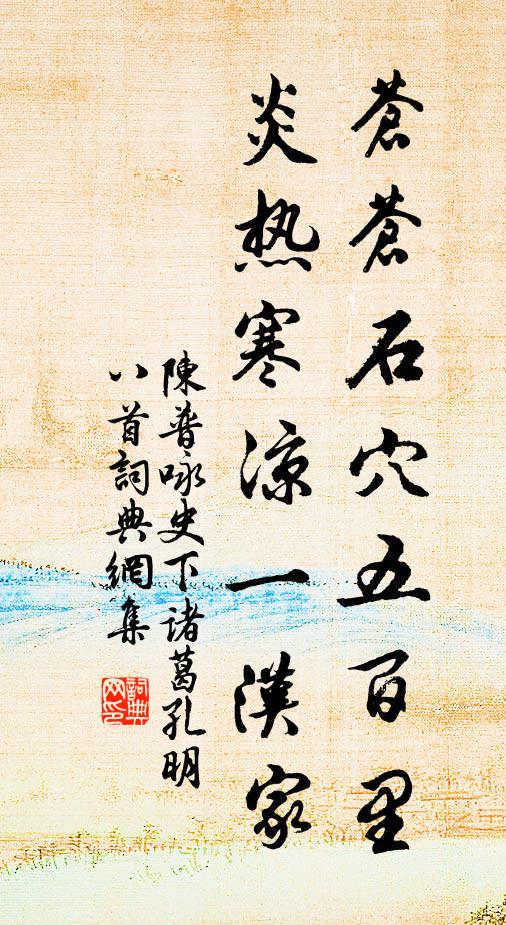 蒼蒼石穴五百里
炎热寒涼一漢家
陳普咏史下诸葛孔明
八首詞典網集
詞典
网印